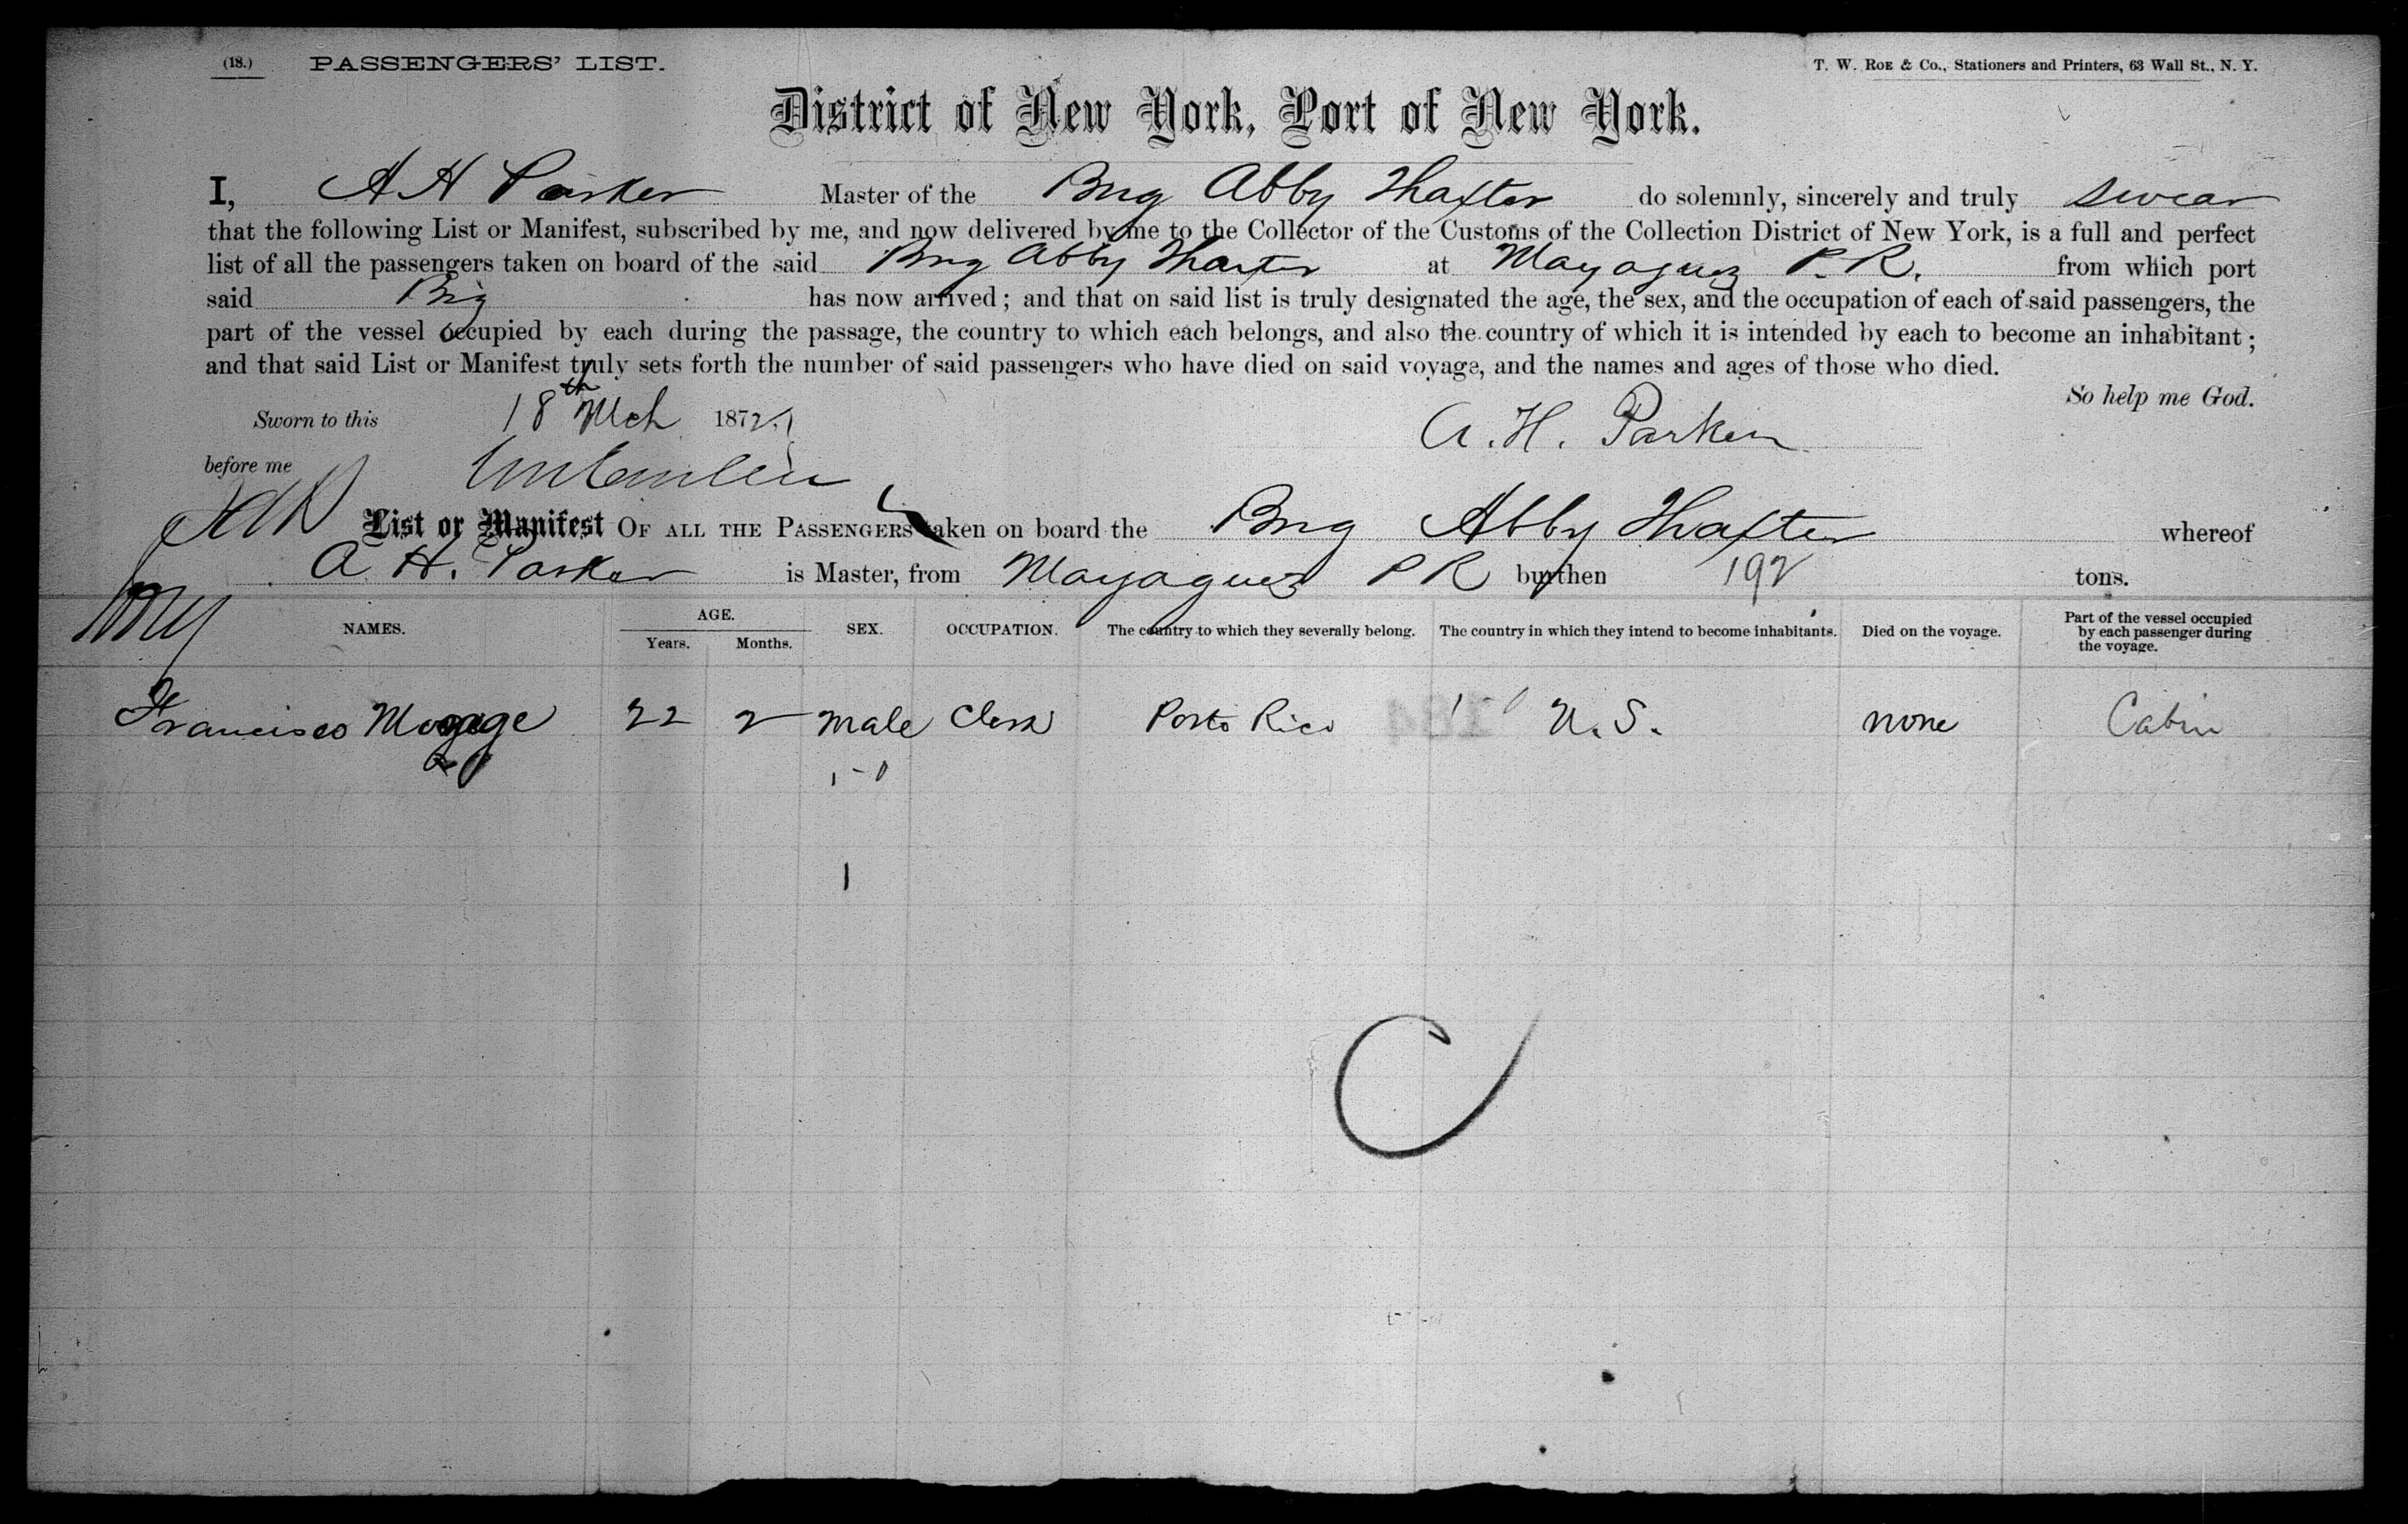 (18.) PASSENGERS' LIST. T. W. ROE & Co., Stationers and Printers, 63 Wall St., N. Y.
District of New York, Port of New York.
I, A H Parker Master of the Brig Abby Thaxter do solemnly, sincerely and truly swear
that the following List or Manifest, subscribed by me, and now delivered by me to the Collector of the Customs of the Collection District of New York, is a full and perfect
list of all the passengers taken on board of the said Brig Abby Thaxter at Mayaguez P. R. from which port
said Brig has now arrived; and that on said list is truly designated the age, the sex, and the occupation of each of said passengers, the
part of the vessel occupied by each during the passage, the country to which each belongs, and also the country of which it is intended by each to become an inhabitant;
and that said List or Manifest truly sets forth the number of said passengers who have died on said voyage, and the names and ages of those who died.
So help me God.
Sworn to this 18th Mch 1872.
A. H. Parker
before me
List or Manifest OF ALL THE PASSENGERS taken on board the Brig Abby Thaxter whereof
A H. Parker is Master, from Mayaguez P R burthen 192 tons.
NAMES. AGE. Years. Months. SEX. OCCUPATION. The country to which they severally belong. The country in which they intend to become inhabitants. Died on the voyage. Part of the vessel occupied by each passenger during the voyage.
Francisco 22 2 Male Clerk Porto Rico U. S. none Cabin
1-0
1